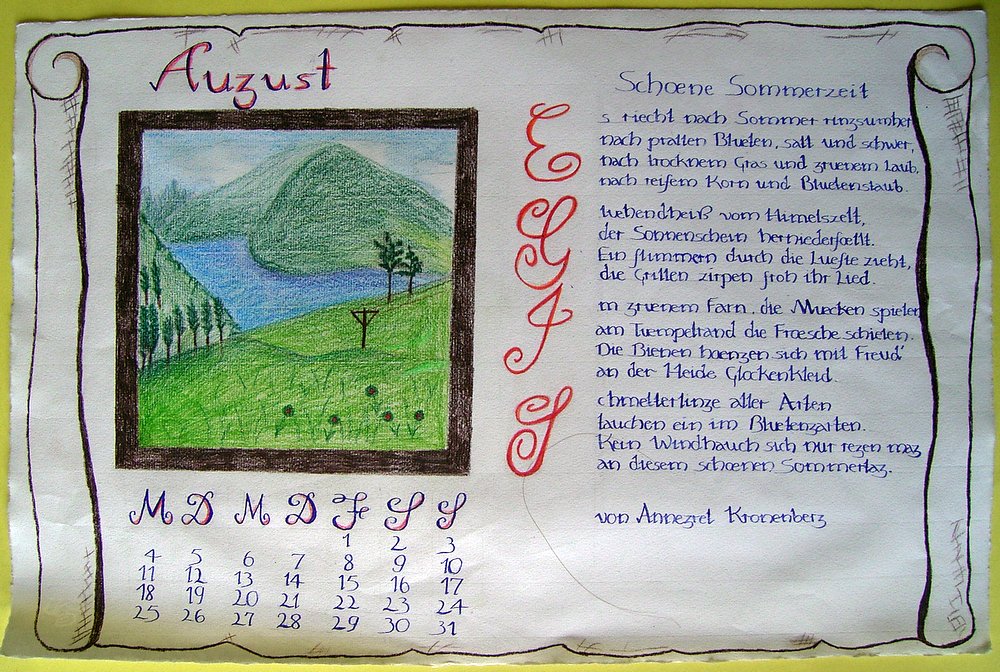 August
M D M D F S S
1 2 3
4 5 6 7 8 9 10
11 12 13 14 15 16 17
18 19 20 21 22 23 24
25 26 27 28 29 30 31
Schoene Sommerzeit
Es riecht nach Sommer ringsumher
nach prallen Blueten, satt und schwer,
nach trocknem Gras und gruenem Laub,
nach reifem Korn und Bluetenstaub.
Gluehendheiß vom Himelszelt,
der Sonnenschein herniederfaellt.
Ein flimmern durch die Luefte zieht,
die Grillen zirpen froh ihr Lied.
Im gruenem Farn, die Muecken spielen
am Tuempelrand die Froesche schielen.
Die Bienen haengen sich mit Freud'
an der Heide Glockenkleid.
Schmetterlinge aller Arten
tauchen ein im Bluetengarten.
Kein Windhauch sich nur regen mag
an diesem schoenen Sommertag.
von Annegret Kronenberg